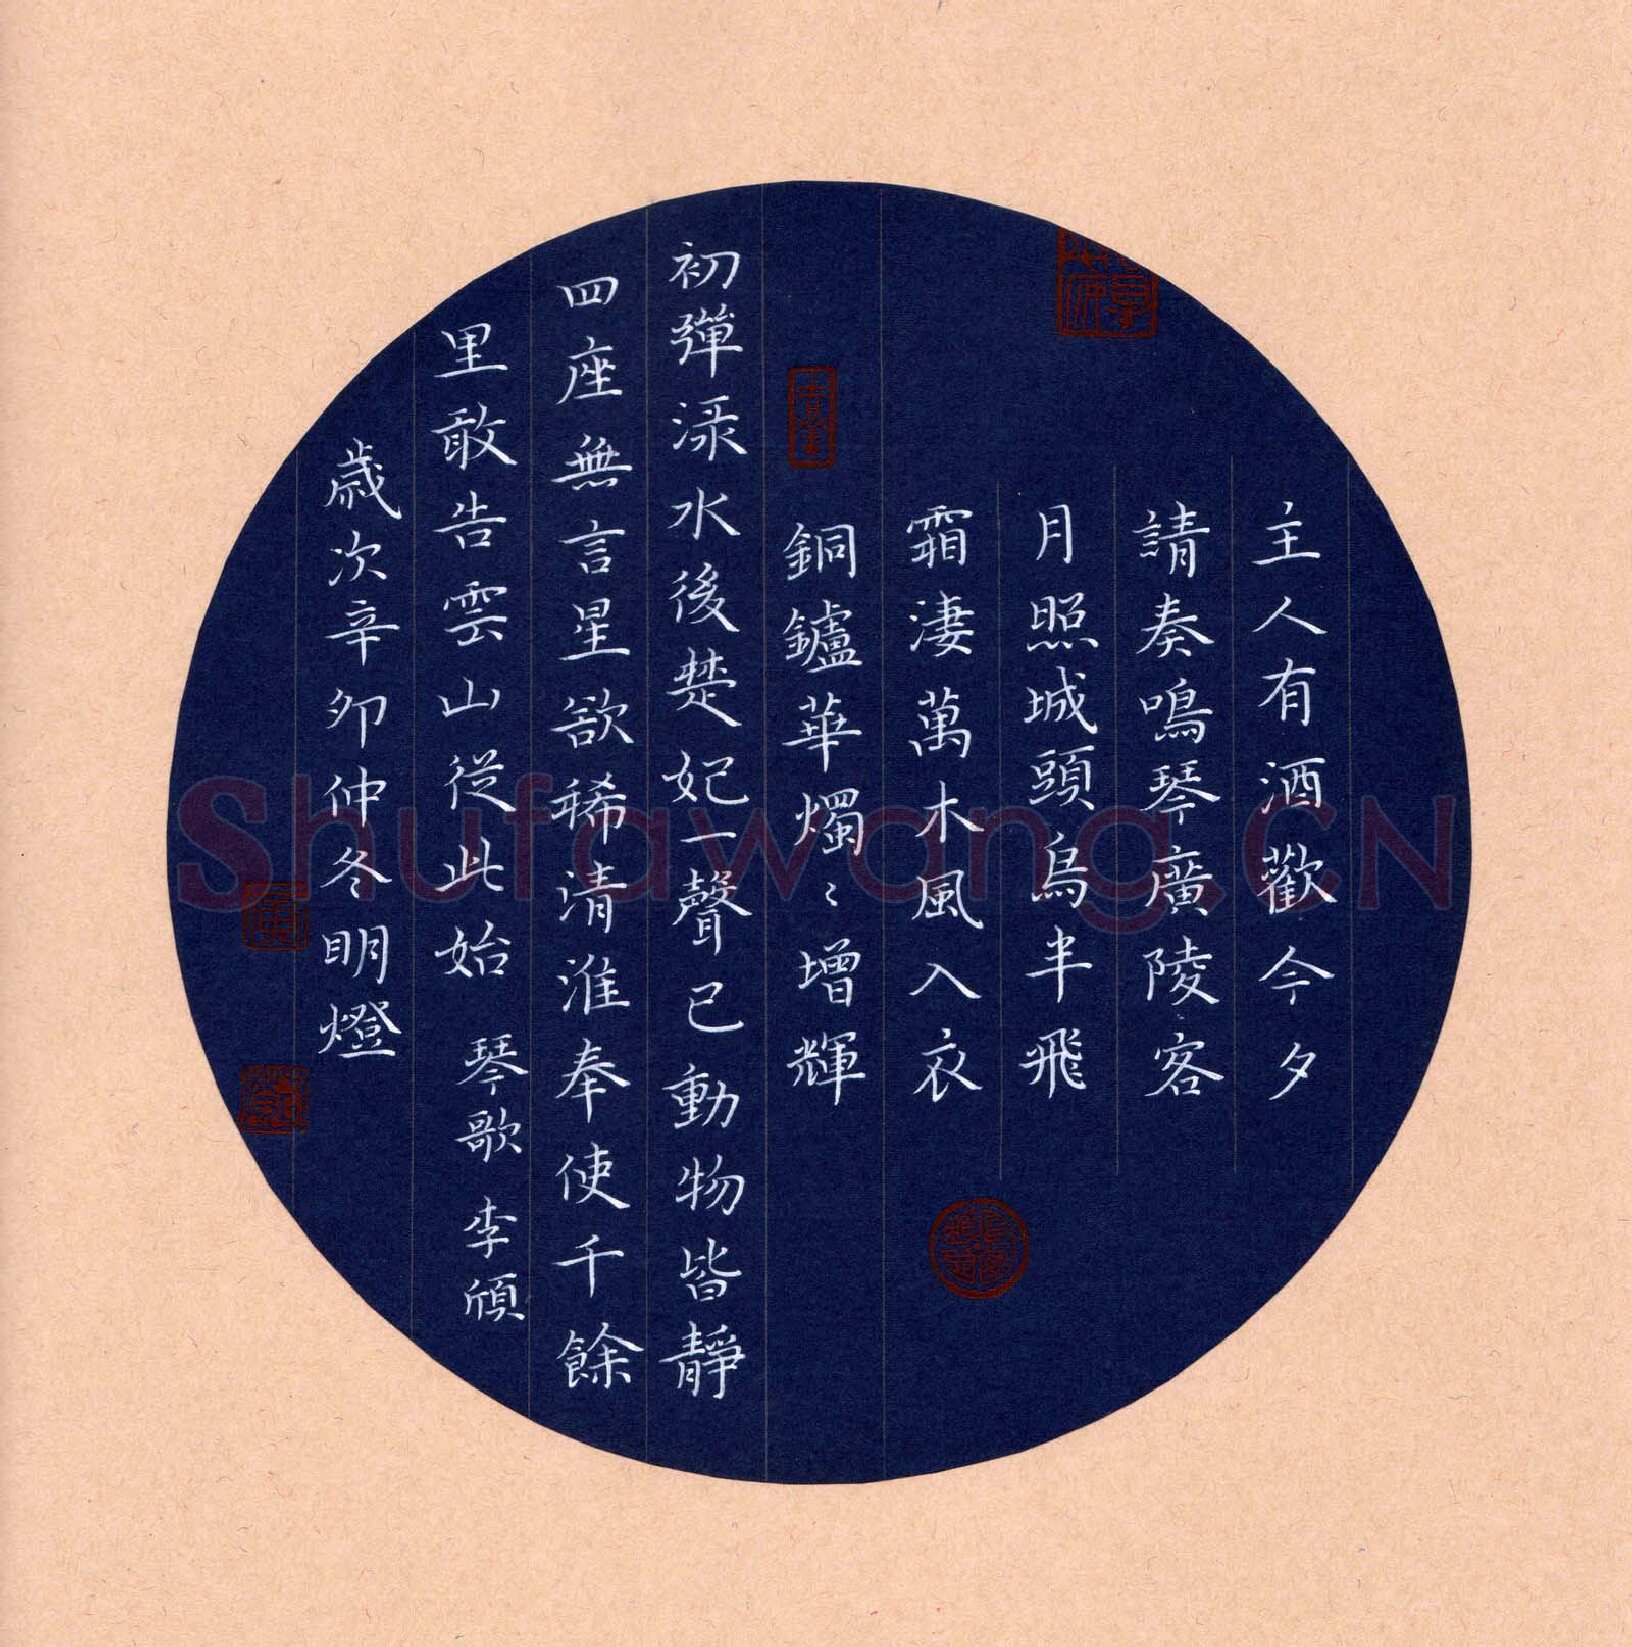 主人有酒歡今夕
請奏鳴琴廣陵客
月照城頭烏半飛
霜淒萬木風入衣
銅鑪華燭燭增輝
初彈淥水後楚妃一聲已動物皆靜
四座無言星欲稀清淮奉使千餘
里敢告雲山從此始 琴歌 李頎
歲次辛卯仲冬明燈
Shufawang.CN